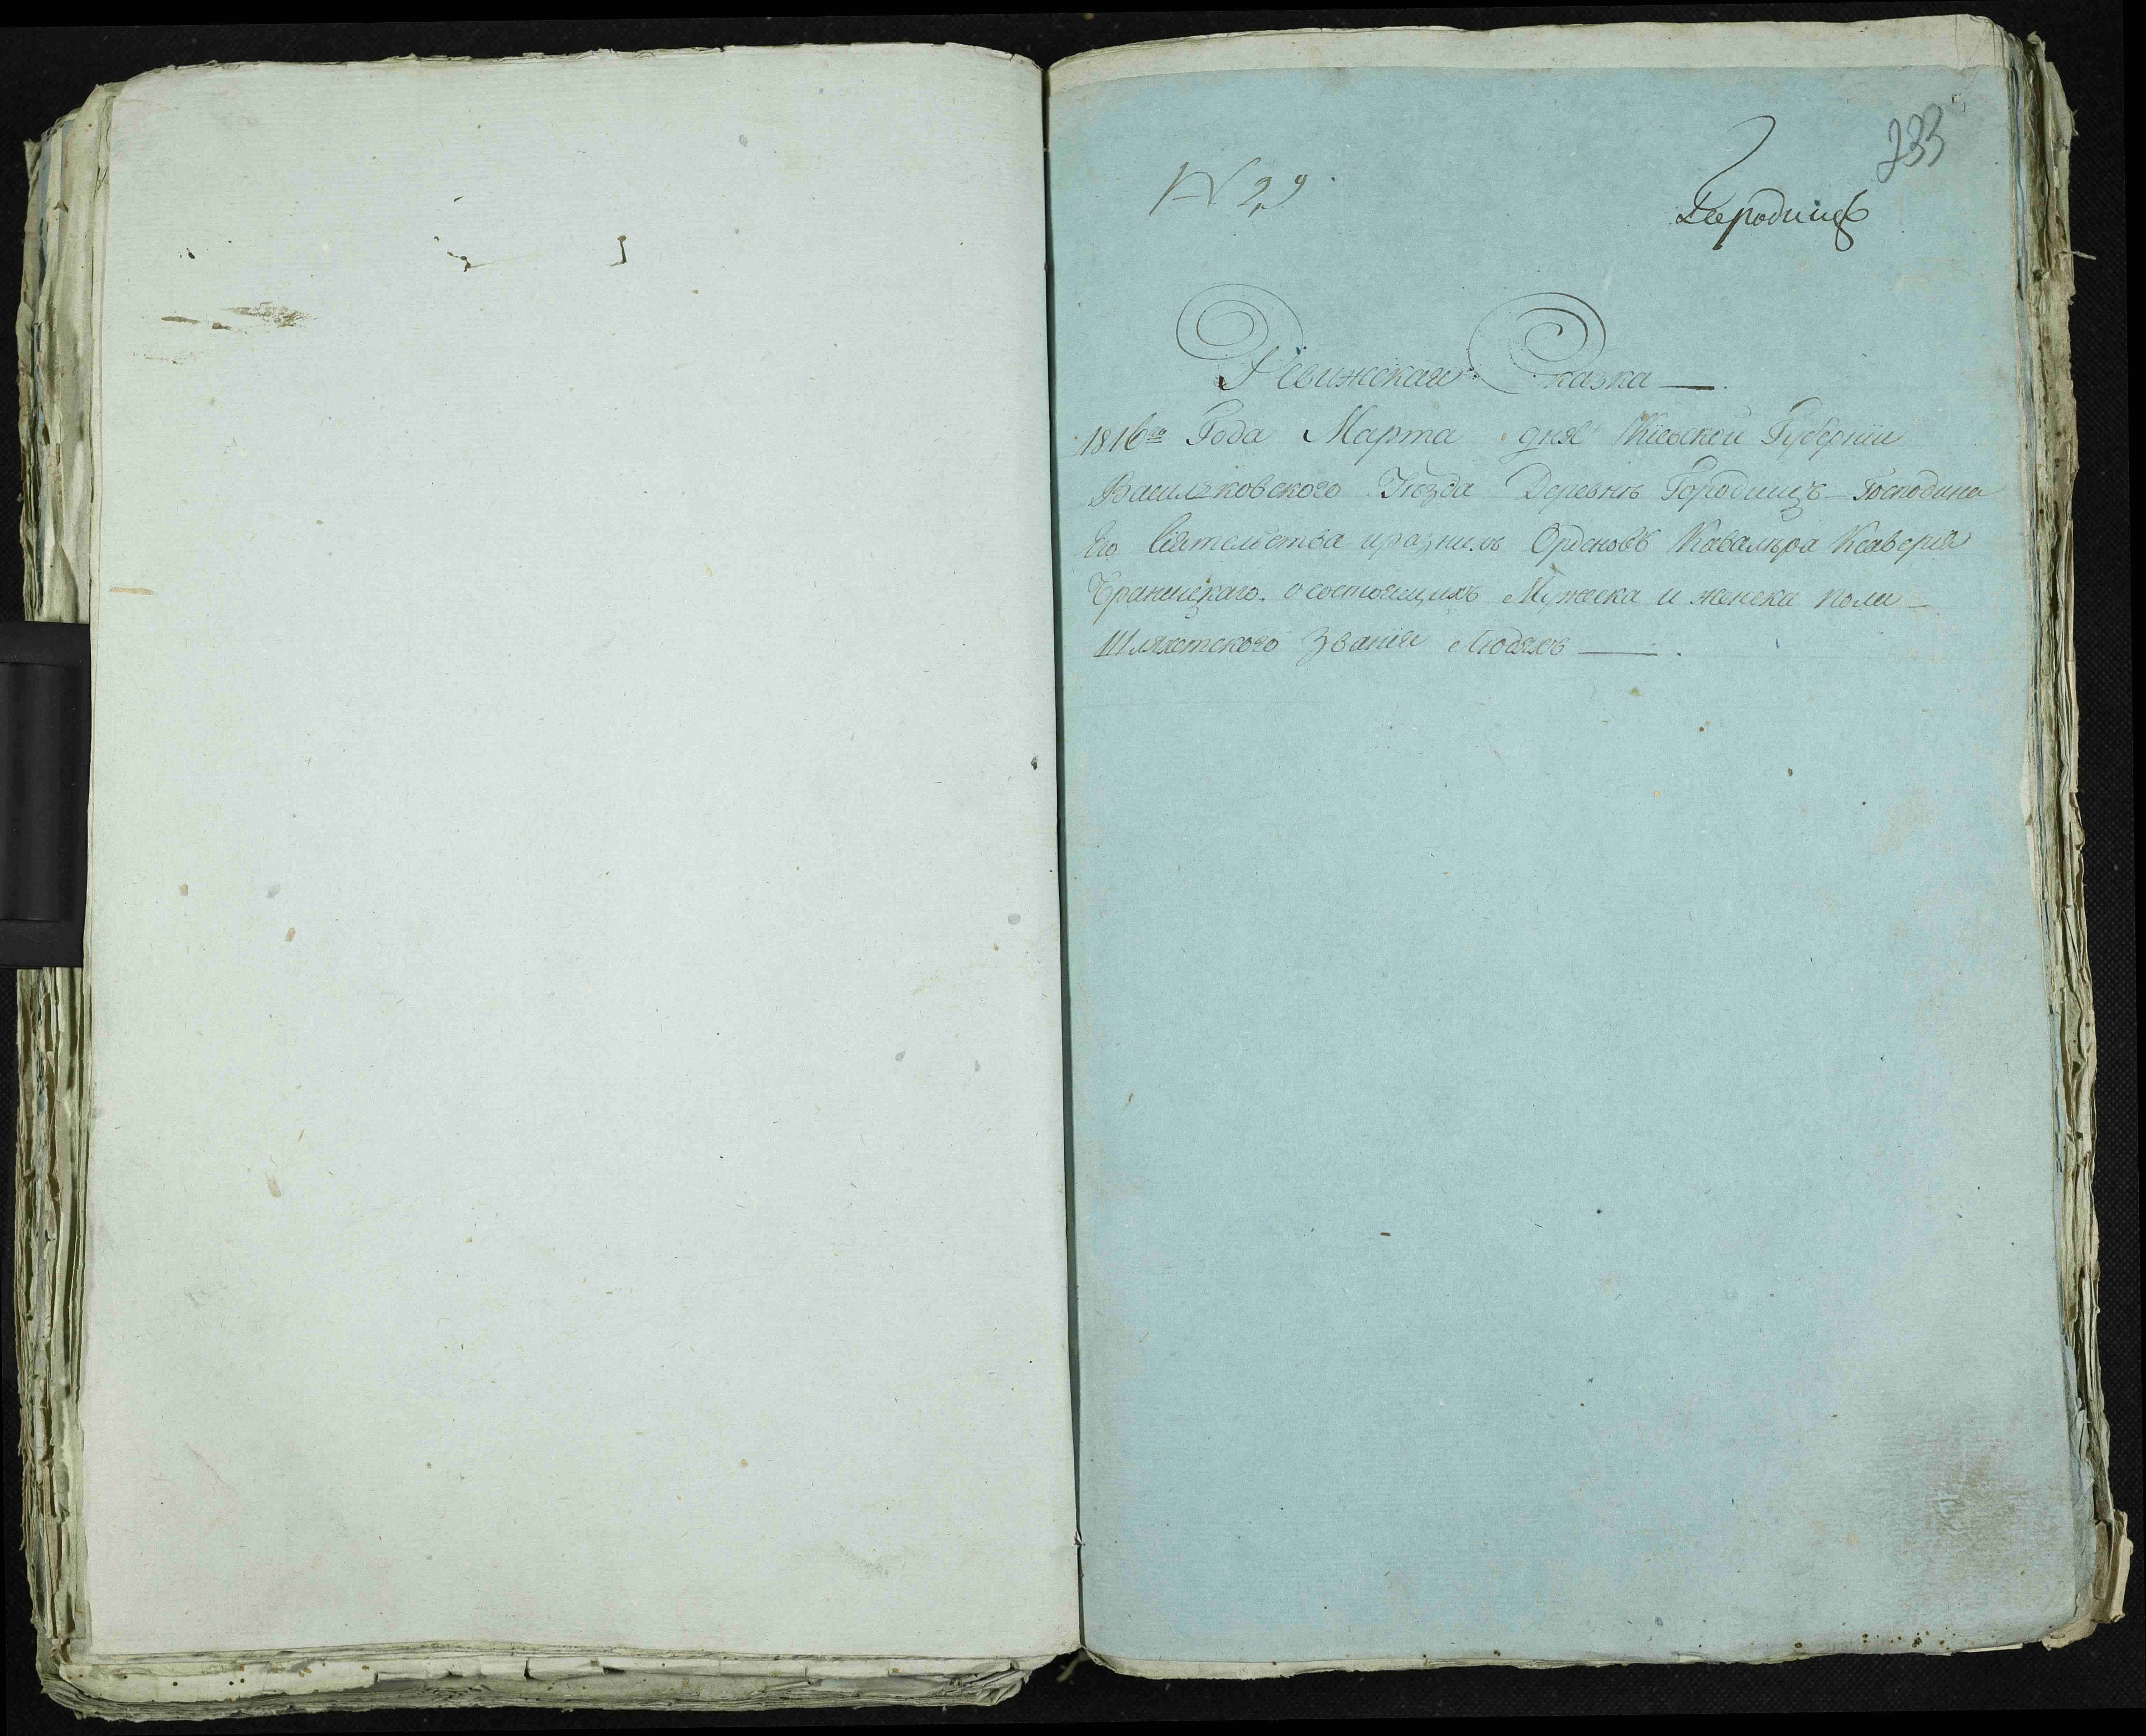 233
N 29
Городищъ
Ревижская Сказка
1816го Года Марта дня Кіевской Губерніи
Васильковского Уѣзда Деревнѣ Городищъ Господина
Его Сіятельства и разныхъ Орденовъ Кавалѣра Ксаверія
Браницкаго о состоящихъ Мужеска и женска пола
Шляхетского Званія Людяхъ